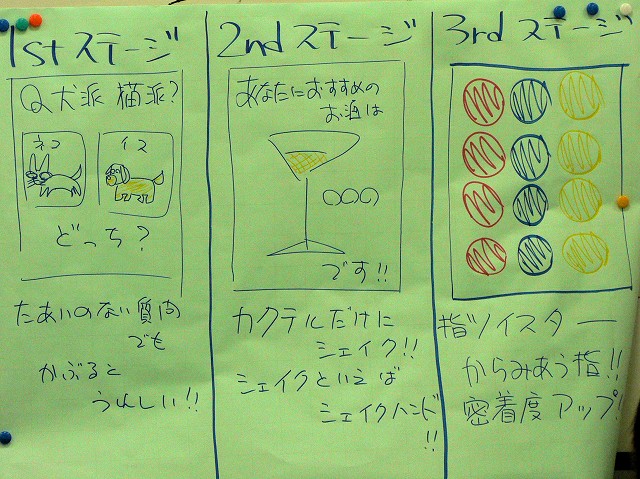 1stステージ
Q犬派 猫派?
ネコ
イヌ
どっち?
たあいのない質問
でも
かぶると
うれしい!!
2ndステージ
あなたにおすすめの
お酒は
○○○
です!!
カクテルだけに
シェイク!!
シェイクといえば
シェイクハンド
!!
3rdステージ
指ツイスター
からみあう指!!
密着度アップ!